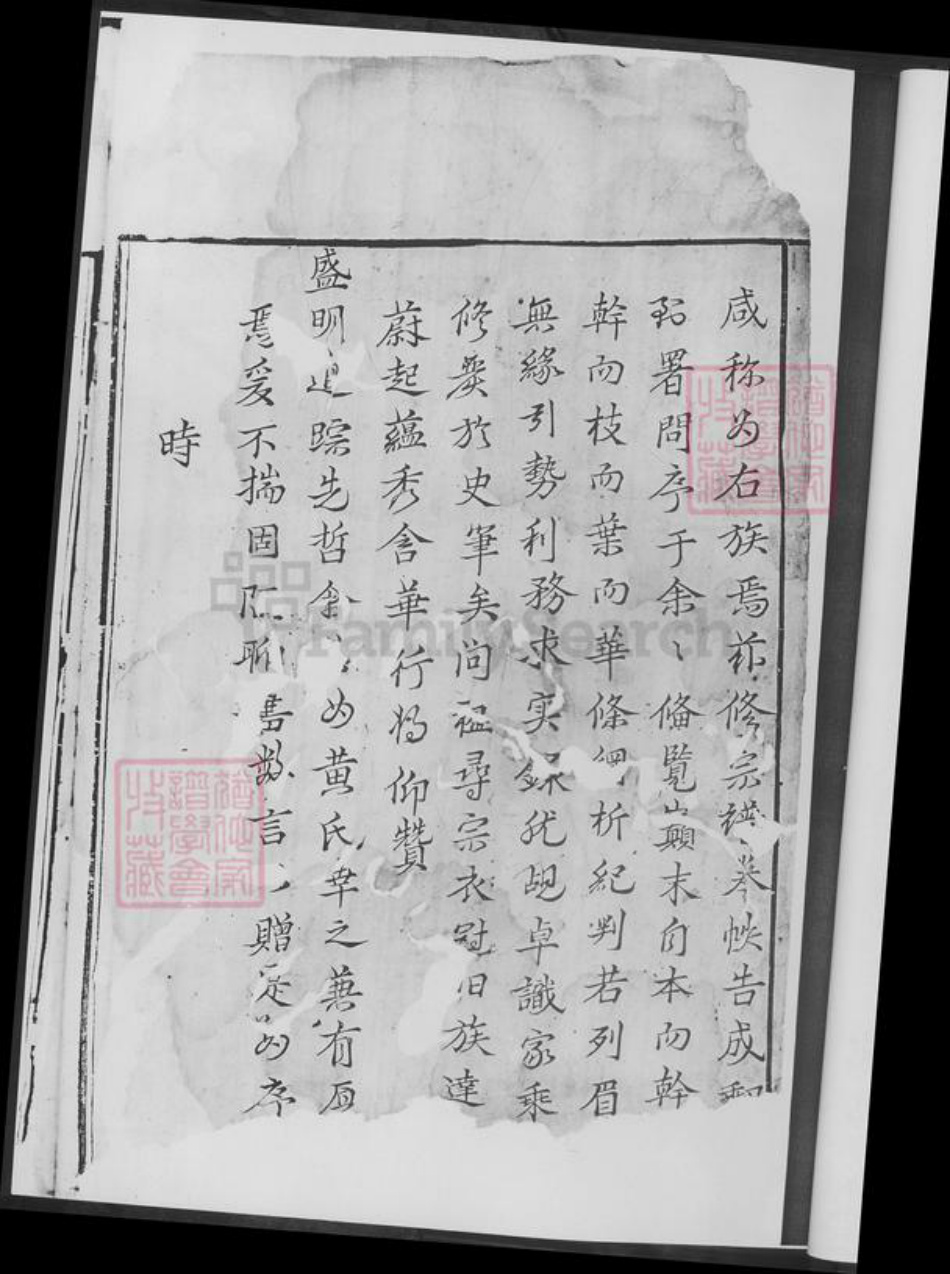 咸称为右族焉茲修宗譜卷帙告成
署問序于余〻俻覧巔末自本而幹
幹而枝而葉而華條綱析紀判若列眉
無緣引勢利務求实錄祇觇卓識家乘
修冀於史筆矣尚禋尋宗衣冠旧族達
蔚起蘊秀含華行将仰贊
盛明追踪先哲余為黄氏幸之兼有厚
焉爰不揣固陋聊書数言贈是為序
時
FamilySearch
譜學會
收藏
譜學會
收藏